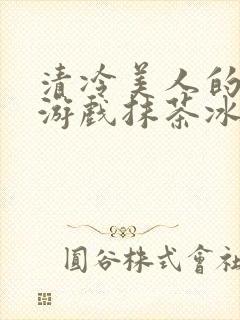 清冷美人的
游戏抹茶冰
圓谷株式會社